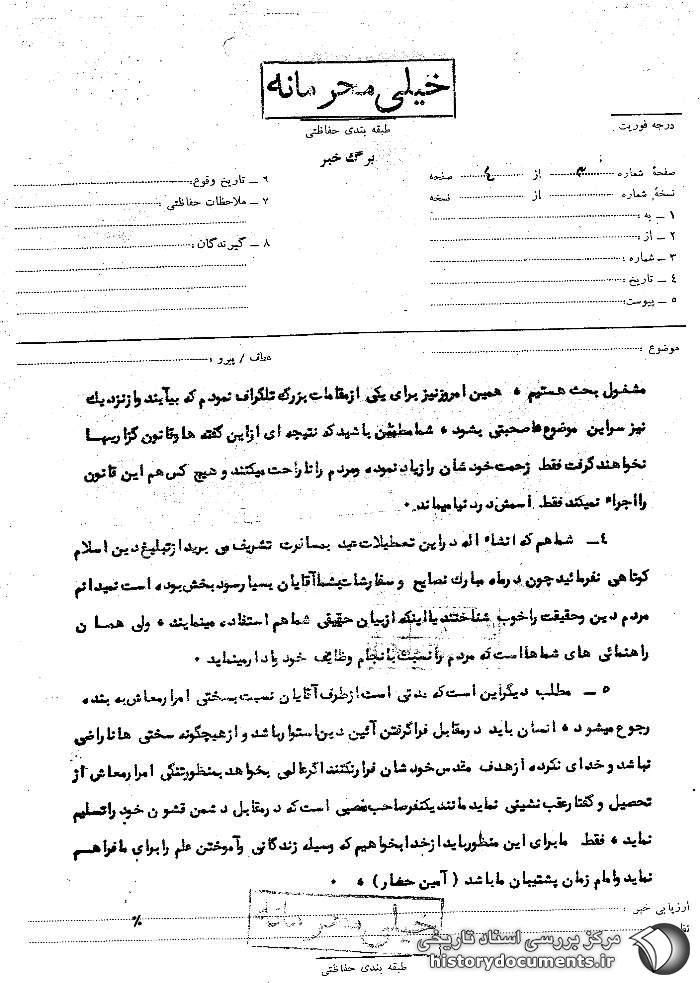 خیلی محرمانه
طبقه بندی حفاظتی
درجه فوریت
برگ خبر
صفحهٔ شماره ۳ از ٤ صفحه
نسخهٔ شماره از نسخه
۱ ــ به :
۲ ــ از :
۳ ــ شماره :
٤ ــ تاریخ :
۵ ــ پیوست:
۶ ــ تاریخ وقوع:
۷ ــ ملاحظات حفاظتی :
۸ ــ گیرندگان :
موضوع :
عطف / پیرو :
مشغول بحث هستیم ۰ همین امروزنیز برای یکی ازمقامات بزرگ تلگراف نمودم که بیآیند وازنزدیك
نیز سراین موضوع ها صحبتی بشود ۰ شما مطمئن باشید که نتیجه ای ازاین گفته ها وقانون گزاریها
نخواهند گرفت فقط زحمت خود شان رازیاد نموده ومردم را ناراحت میکنند و هیچ کس هم این قانون
را اجراء نمیکند فقط اسمش درد نیا میماند ۰
٤ــ شما هم که انشاء اله د راین تعطیلات عید بمسافرت تشریف می برید ازتبلیغ دین اسلام
کوتاهی نفرمائید چون د رماه مبارك نصایح و سفارشات شما آقایان بسیار سود بخش بود ه است نمیدانم
مردم دین وحقیقت را خوب شناختند یا اینکه ازبیان حقیقی شما هم استفاده مینمایند ۰ ولی همان
راهنمائی های شما ها است که مردم را نسبت بانجام وظائف خود وادارمینماید ۰
۵ ــ مطلب دیگراین است که مدتی است ازطرف آقایان نسبت بسختی امرارمعاش به بنده
رجوع میشود ۰ انسان باید د رمقابل فراگرفتن آئین دین استوارباشد و ازهیچگونه سختی ها ناراضی
نباشد و خدای نکرده ازهدف مقدس خود شان فرارنکنند اگرعالمی بخواهد بمنظورتنگی امرارمعاش از
تحصیل و گفتارعقب نشینی نماید مانند یکنفرصاحب منصبی است که د رمقابل د شمن قشون خود را تسلیم
نماید ۰ فقط مابرای این منظورباید ازخدا بخواهیم که وسیله زندگانی وآموختن علم را برای ما فراهم
نماید وامام زمان پشتیبان ما باشد ( آمین حضار ) ۰ ۰
ارزیابی خبر :
خیلی محرمانه
طبقه بندی حفاظتی
مرکز بررسی اسناد تاریخی
historydocuments.ir